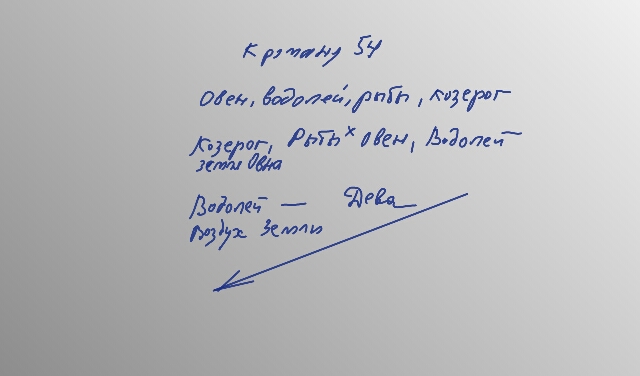 К роману 54
Овен, водолей, рыбы, козерог
Козерог, Рыбы х Овен, Водолей
земли Овна
Водолей — Дева
Воздух Земли